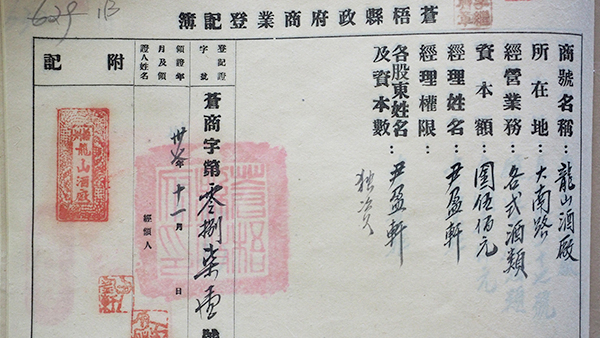 629
蒼梧縣政府商業登記簿
商號名稱：龍山酒廠
所在地：大南路
經營業務：各式酒類
資本額：國伍佰元
經理姓名：尹盈軒
經理權限：
各股東姓名及資本數：尹盈軒
独資
登記證字號
蒼商字第零捌柒壹號
領證年月及領證人姓名
十一月 日
經領人
附記
龍山酒廠
蒼梧